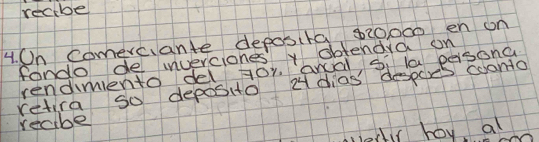 recibe
4. Un comerciante deposita $20,000 en un
fondo de inverciones y obtendra un
rendimiento del 70% anual si la persona
retira so deposito 24 dias despues cuanto
recibe
hoy al